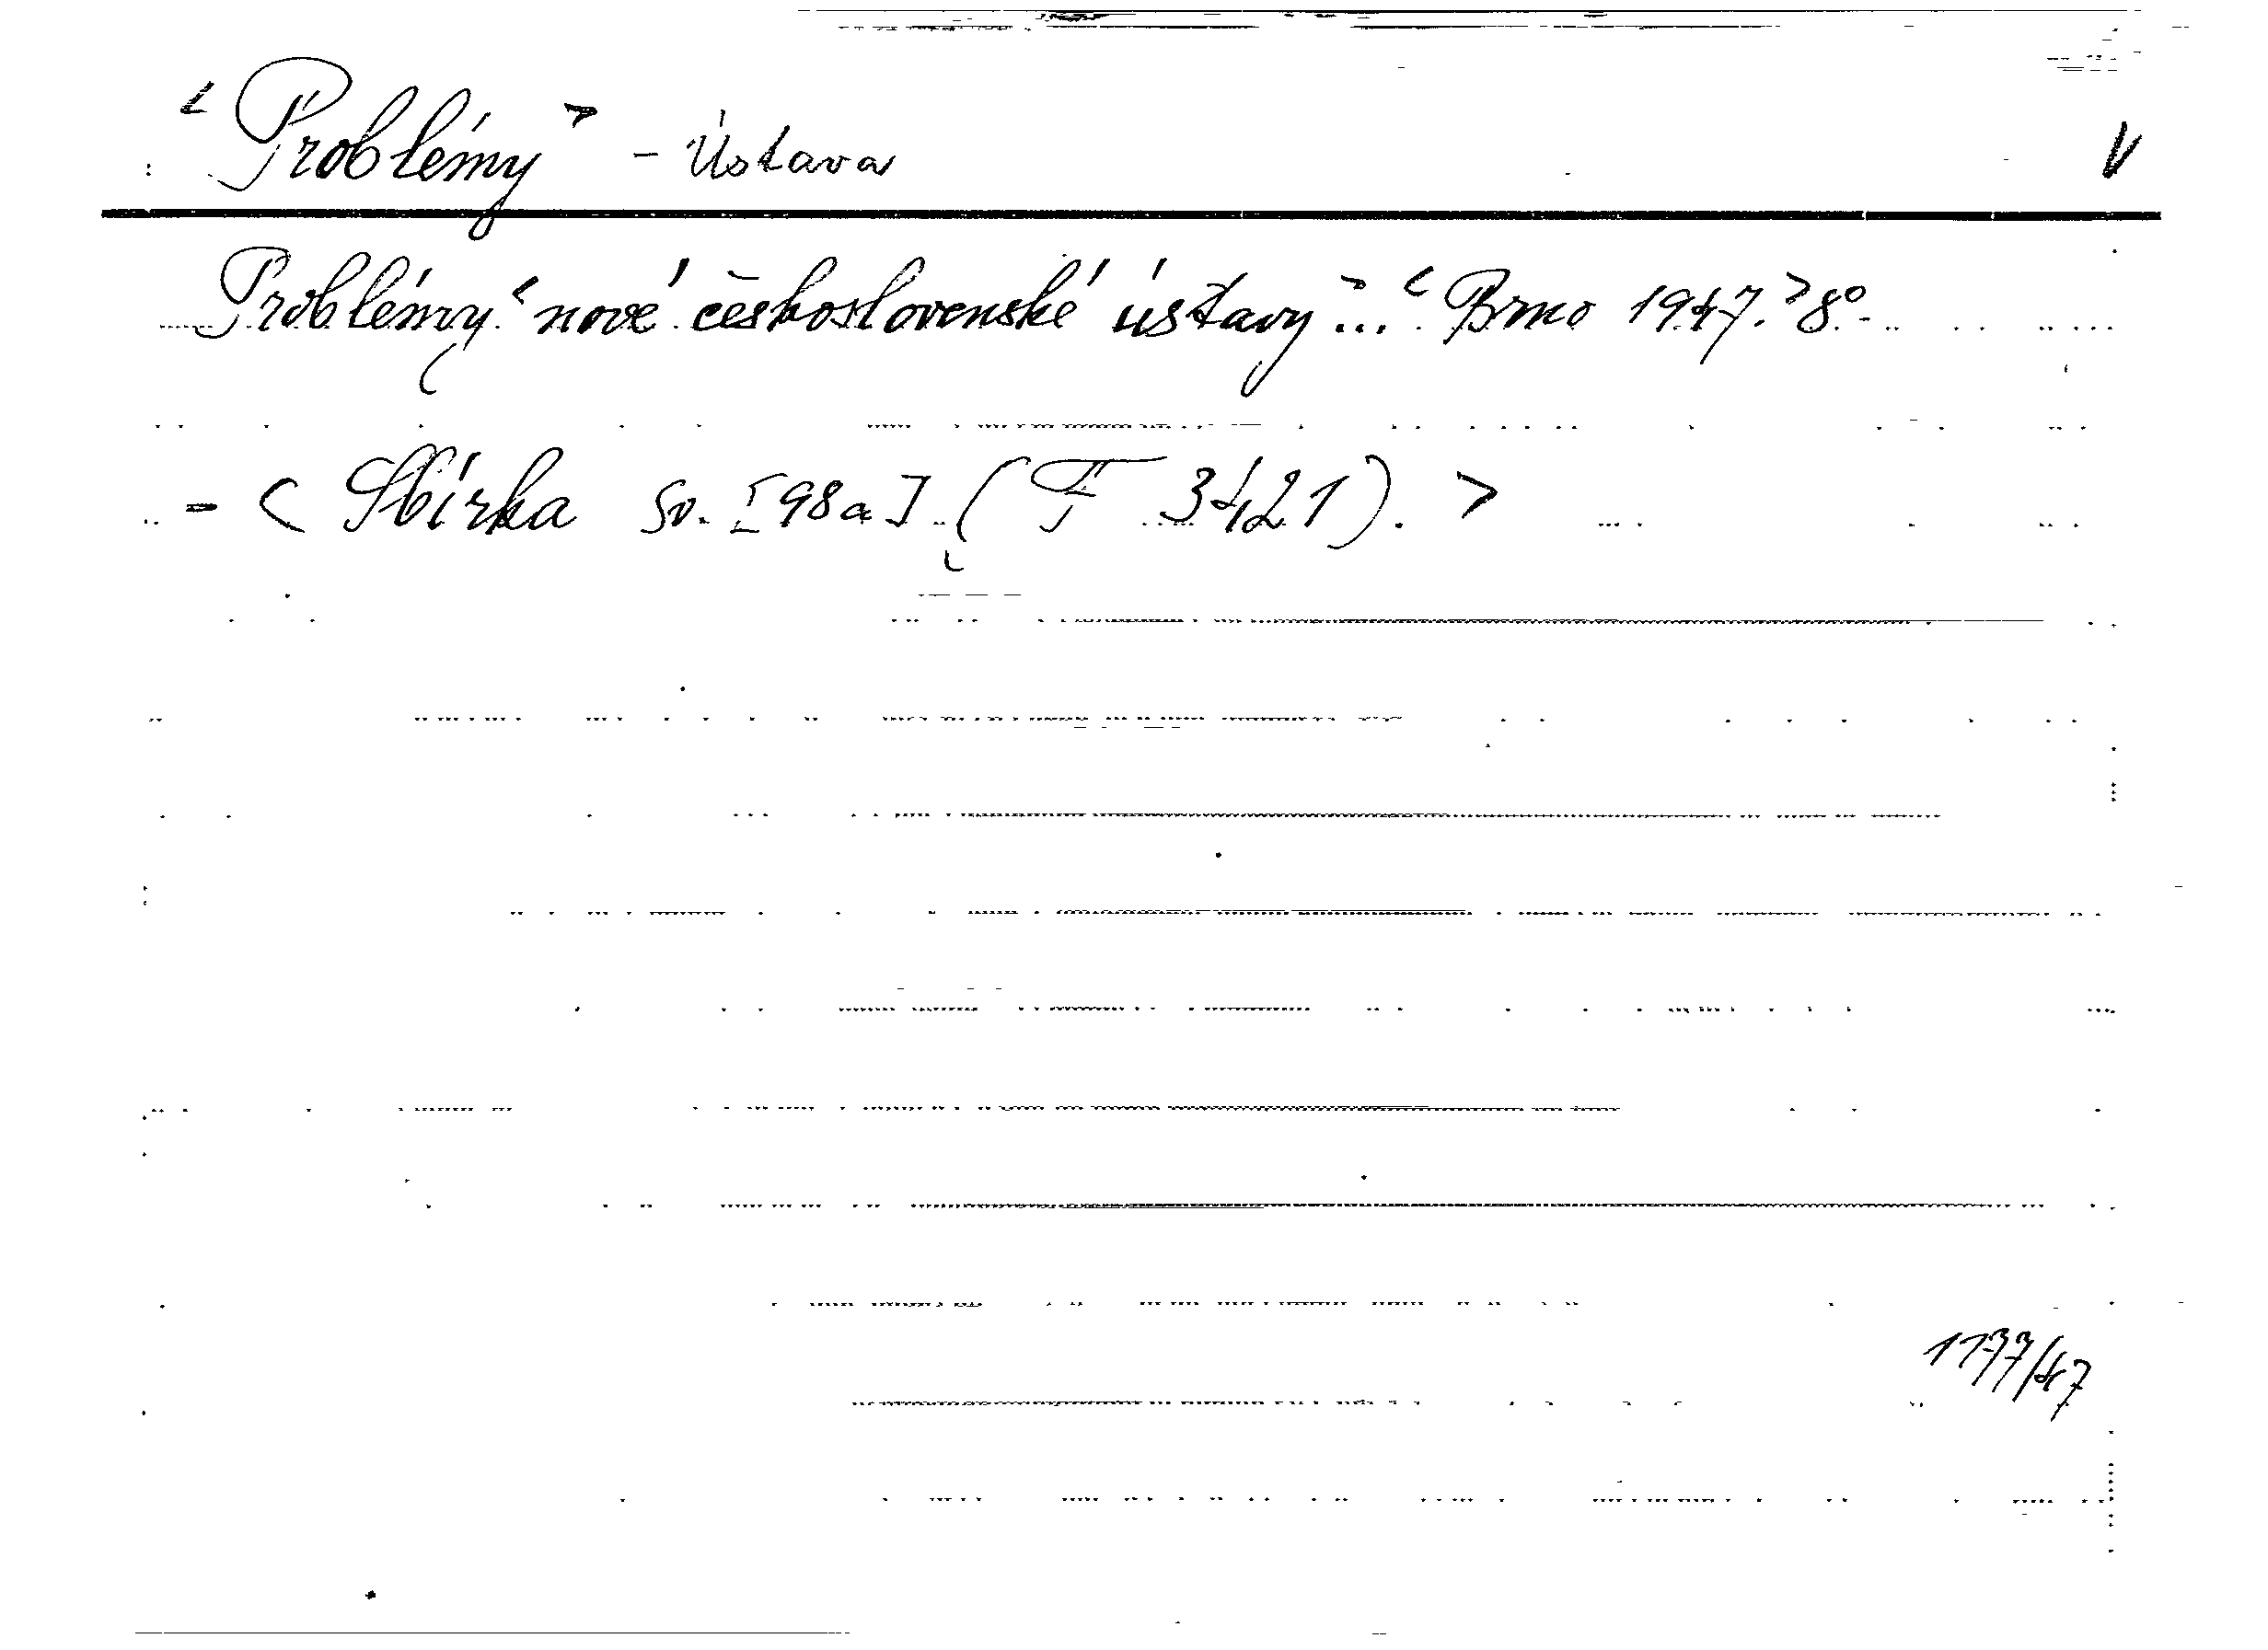 < Problémy > - Ústava V
Problémy < nové československé ústavy > ... < Brno 1947. > 8°-
- < Sbírka sv. [98a] (F 3421). >
1177/47